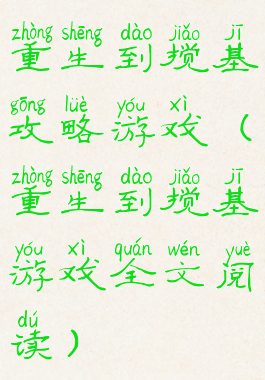 zhòng shēng dào jiǎo jī
重生到搅基
gōng lüè yóu xì
攻略游戏（
zhòng shēng dào jiǎo jī
重生到搅基
yóu xì quán wén yuè
游戏全文阅
dú
读）